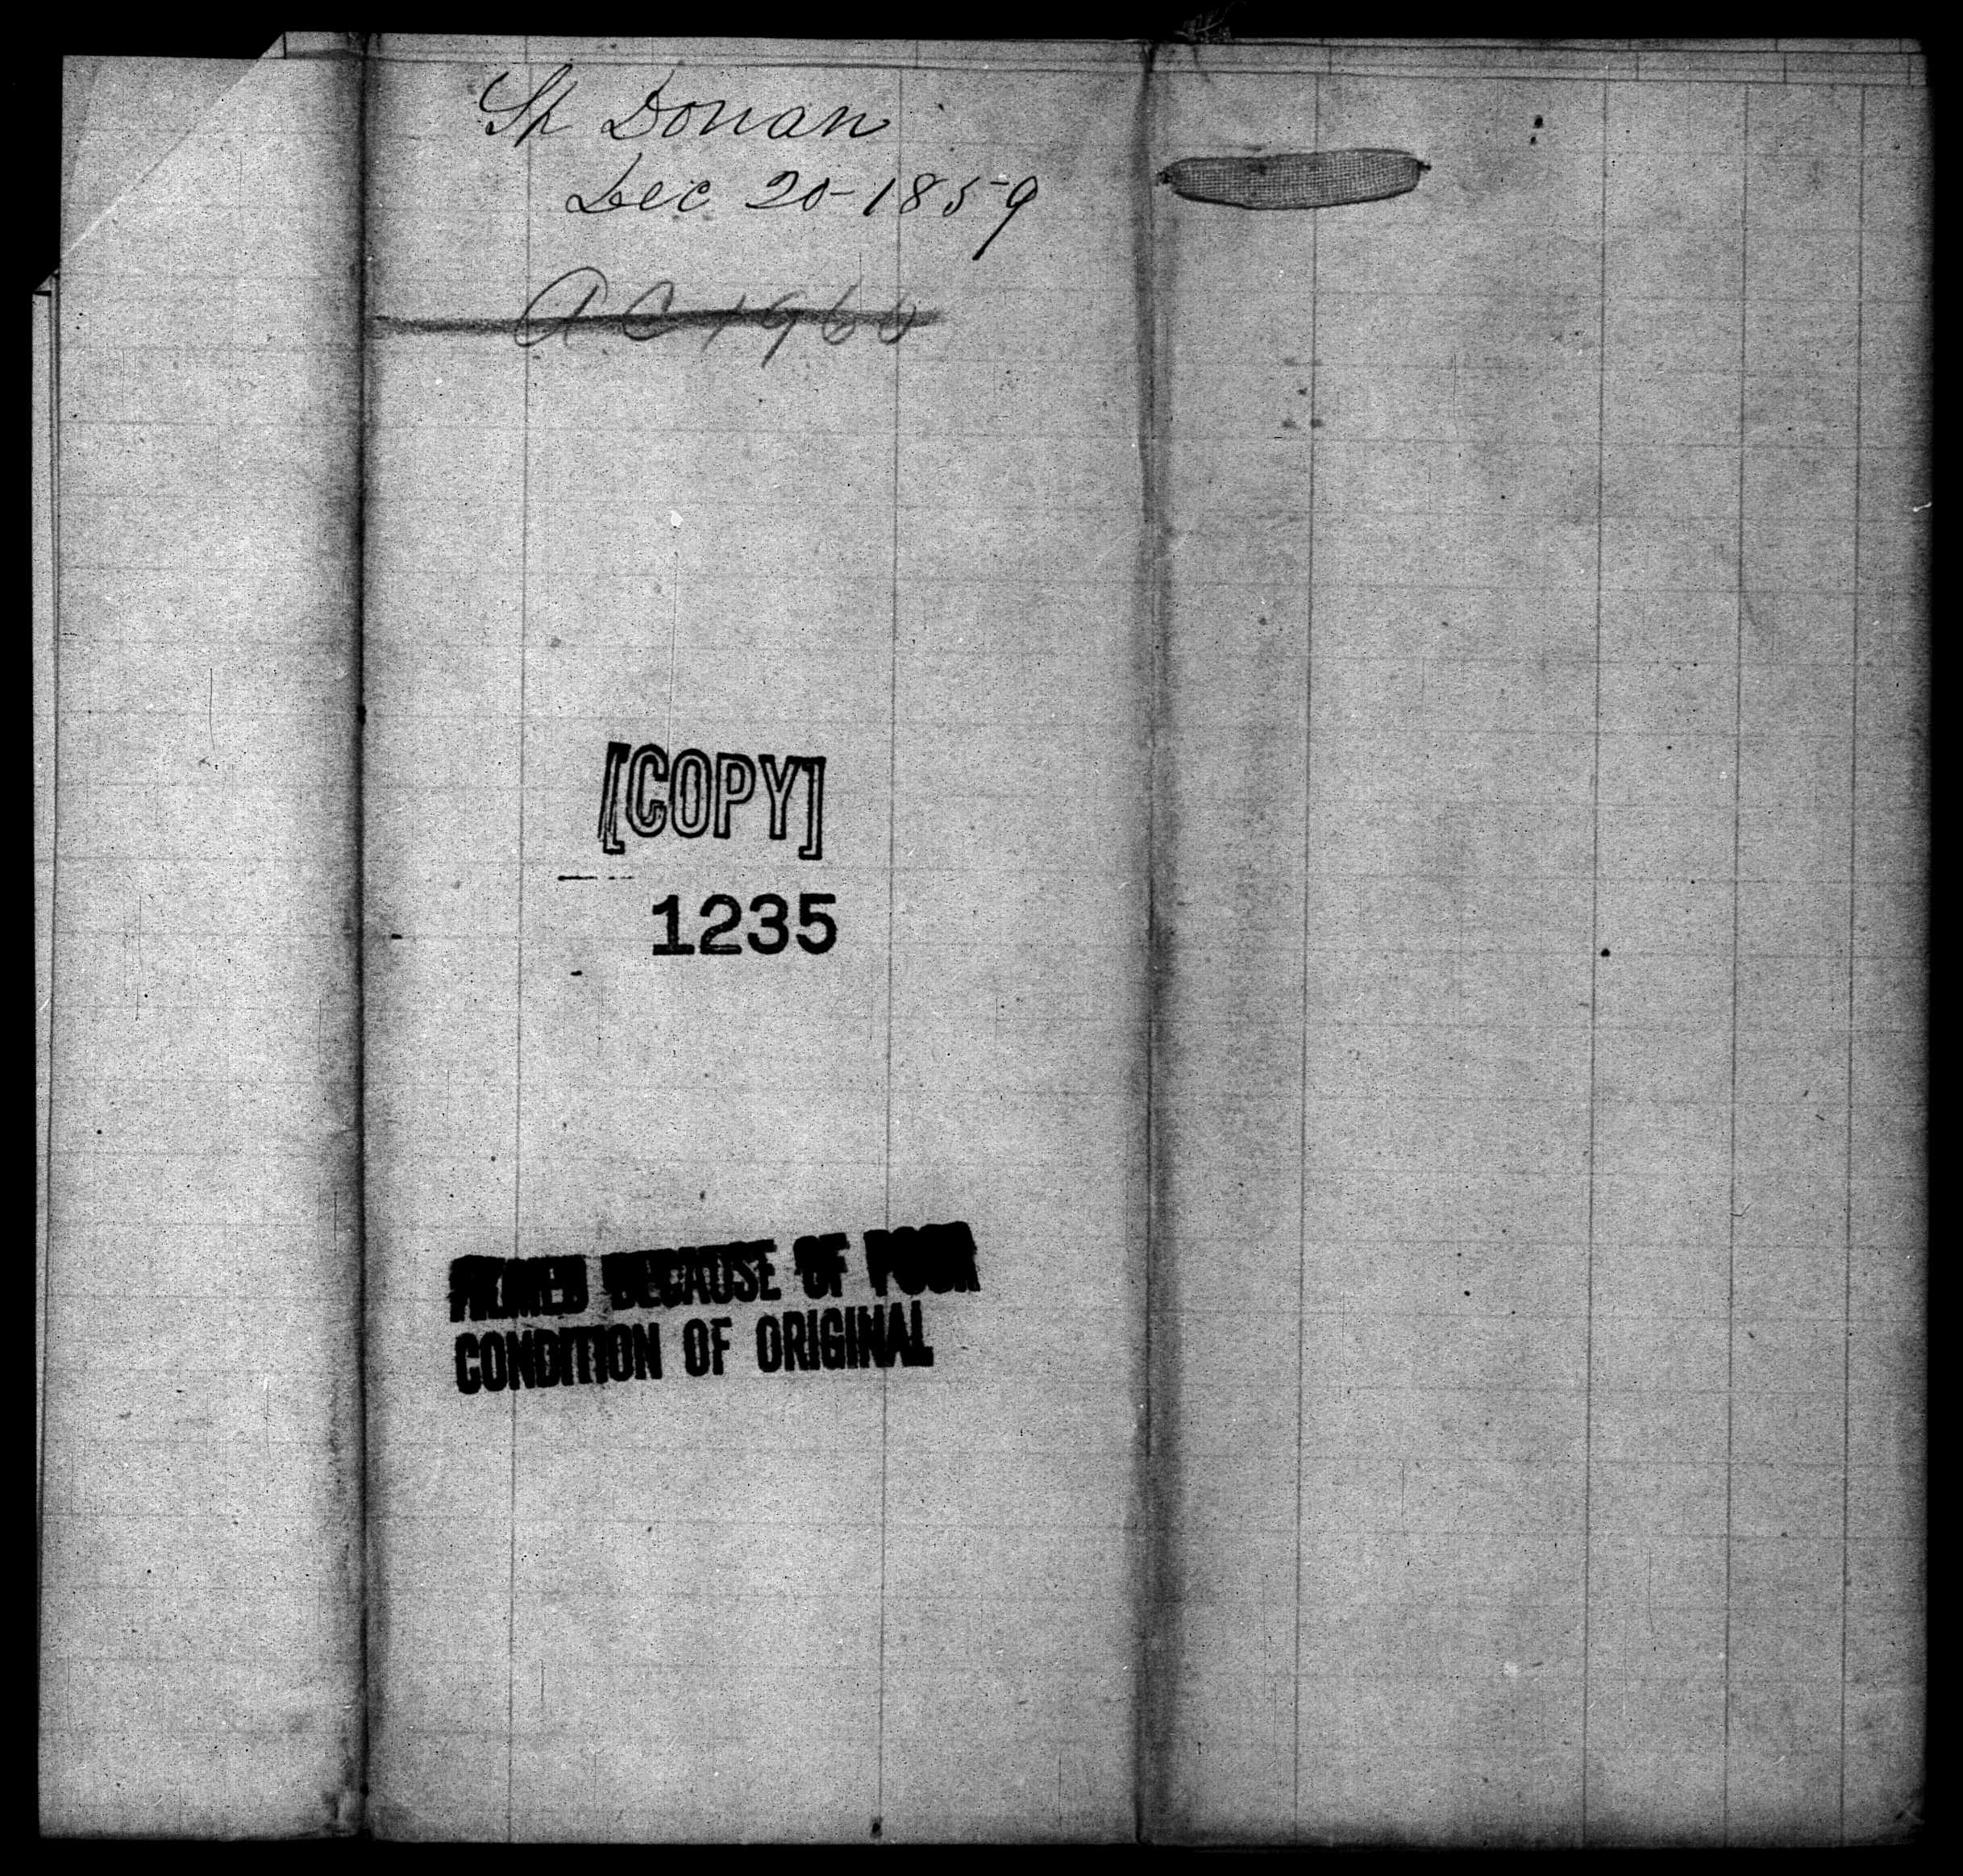 Sp Donan
Dec 20-1859
AC 1960
[COPY]
1235
FILMED BECAUSE OF POOR
CONDITION OF ORIGINAL